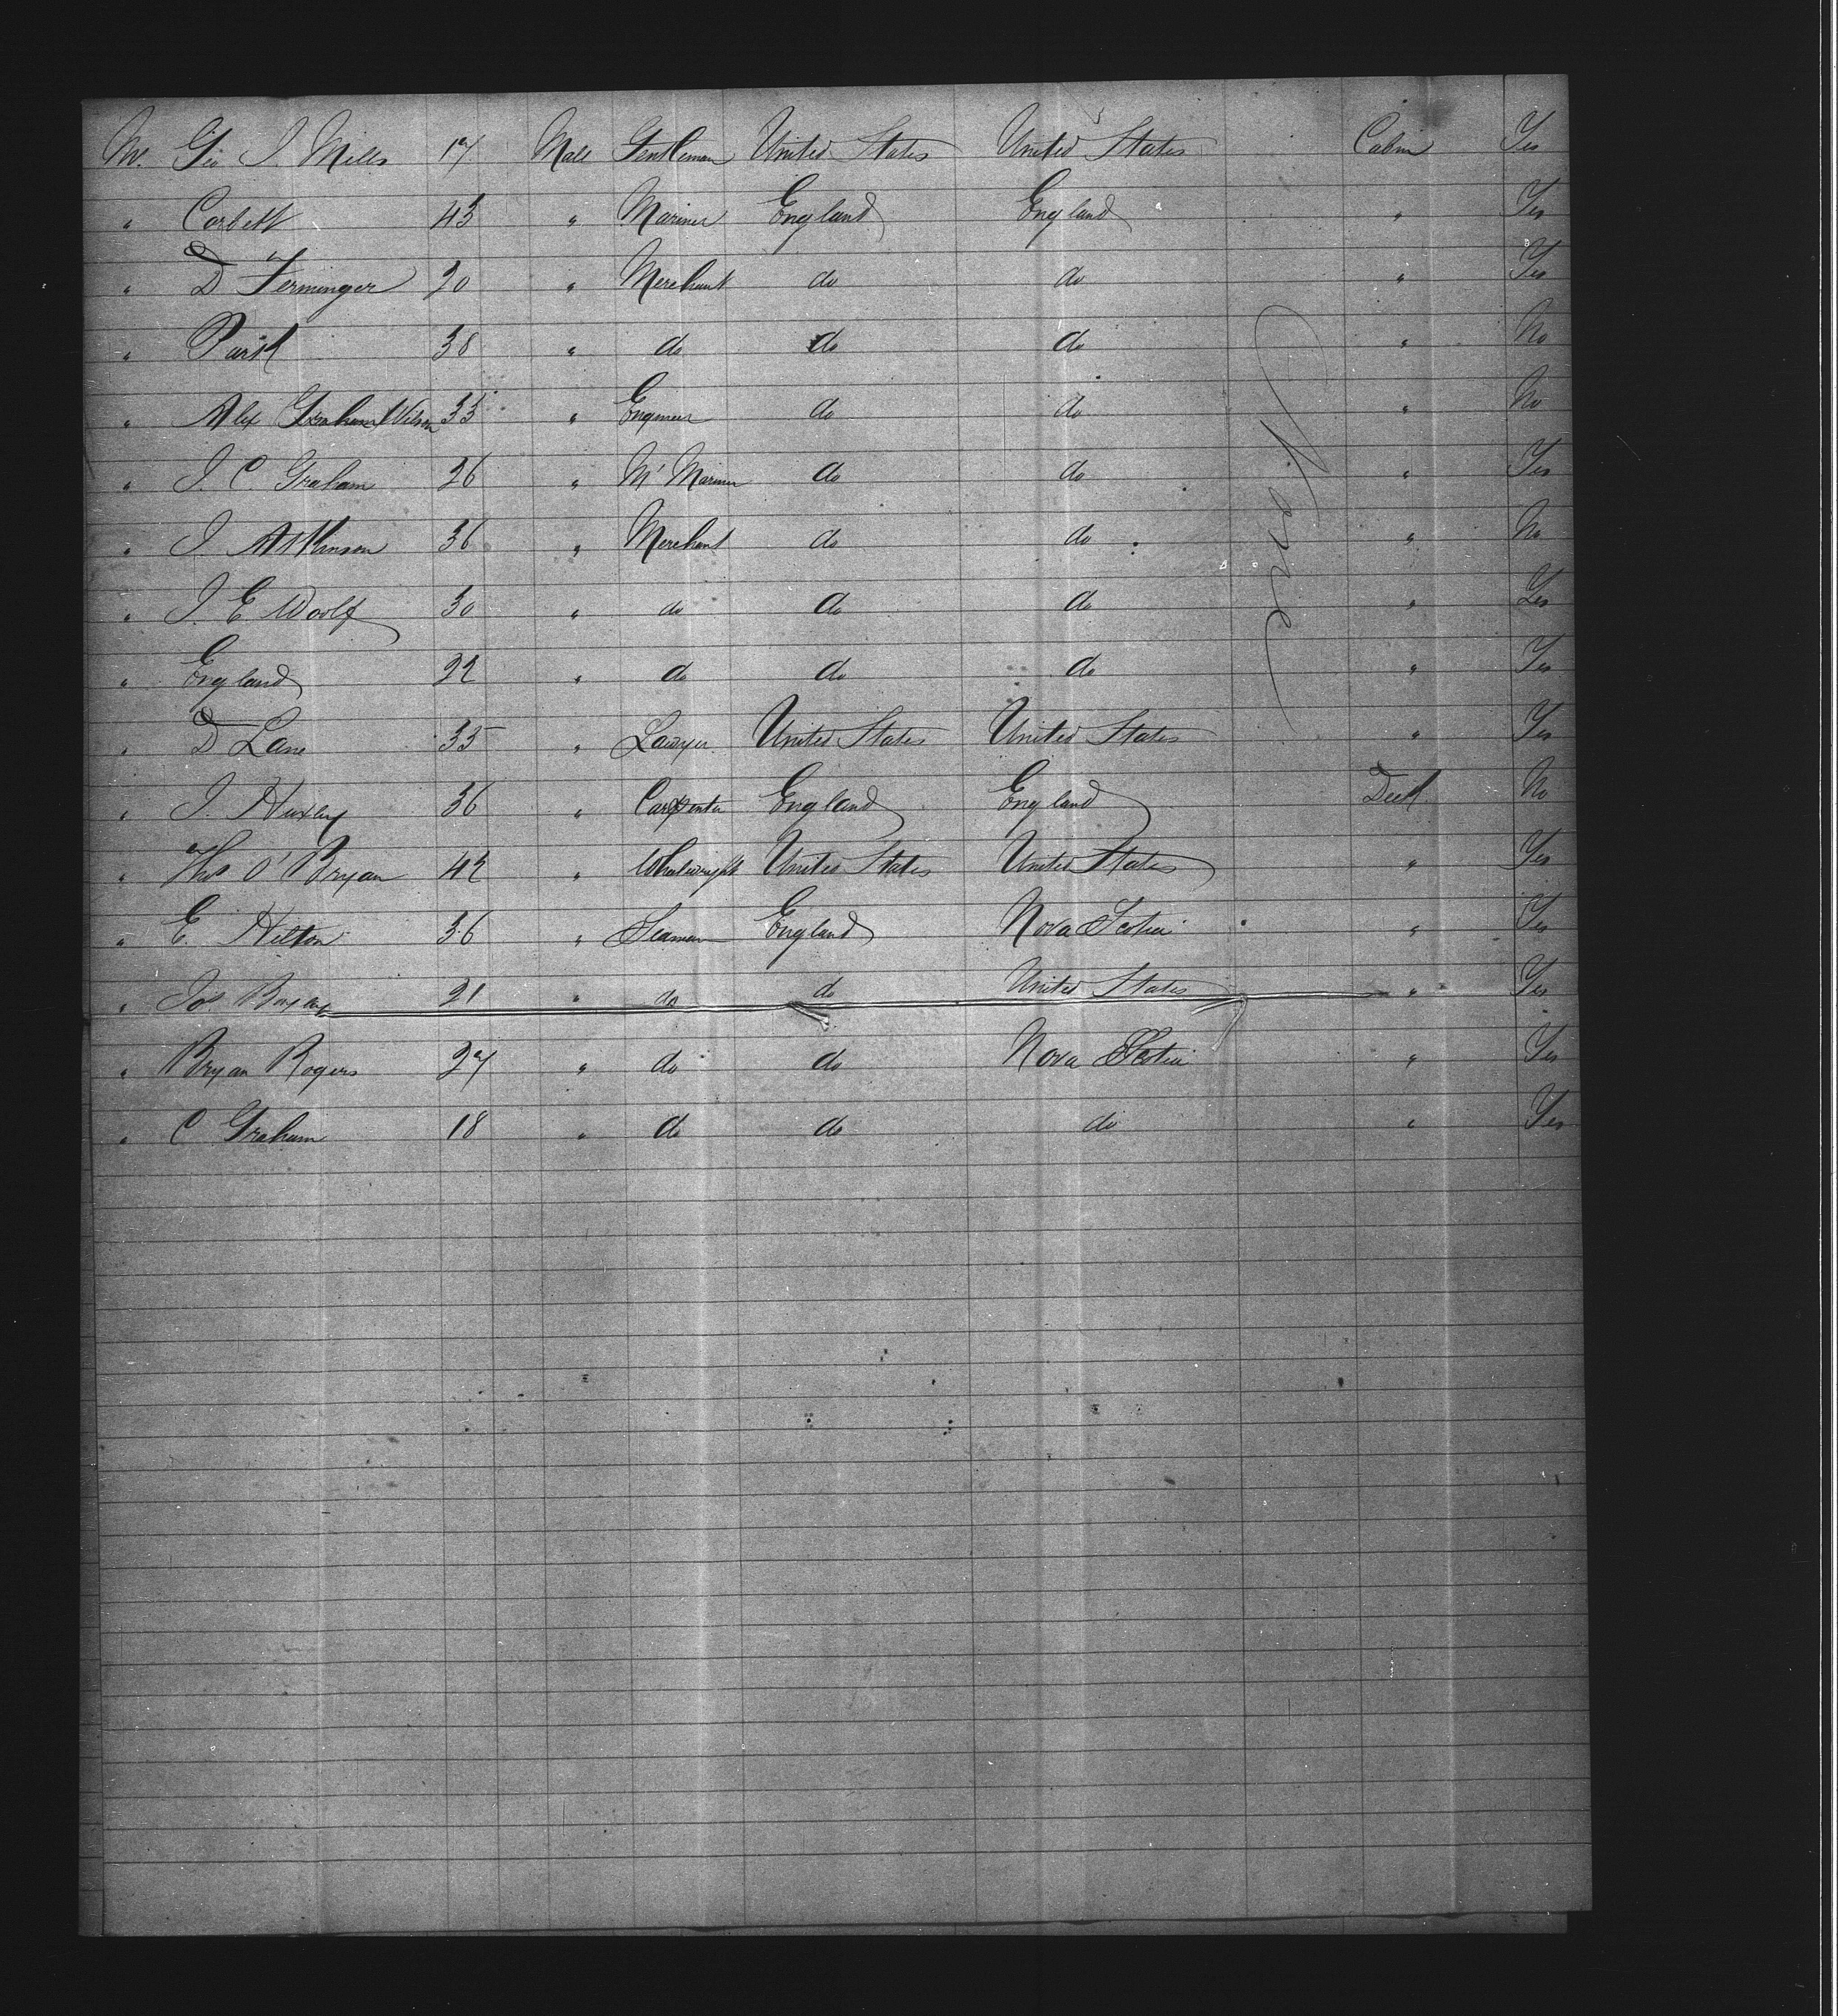 Mr. Geo J Mills 17 Male Gentleman United States United States Cabin Yes
" Corbett 43 " Mariner England England " Yes
" D Ferminger 20 " Merchant do do " Yes
" Park 38 " do do do " No
" Alex Graham Wilson 33 " Engineer do do " No
" J. C. Graham 26 " Mr Mariner do do " Yes
" J. Atkinson 36 " Merchant do do " No
" J. E Woolf 30 " do do do " Yes
" England 22 " do do do " Yes
" D Lane 35 " Lawyer United States United States " Yes
" J. Huxley 36 " Carpenter England England Deck No
" Thos O'Bryan 42 " Wheelwright United States United States " Yes
" E. Hilton 36 " Seaman England Nova Scotia " Yes
" Jos. 21 " do do United States " Yes
" Bryan Rogers 27 " do do Nova Scotia " Yes
" C Graham 18 " do do do " Yes
None